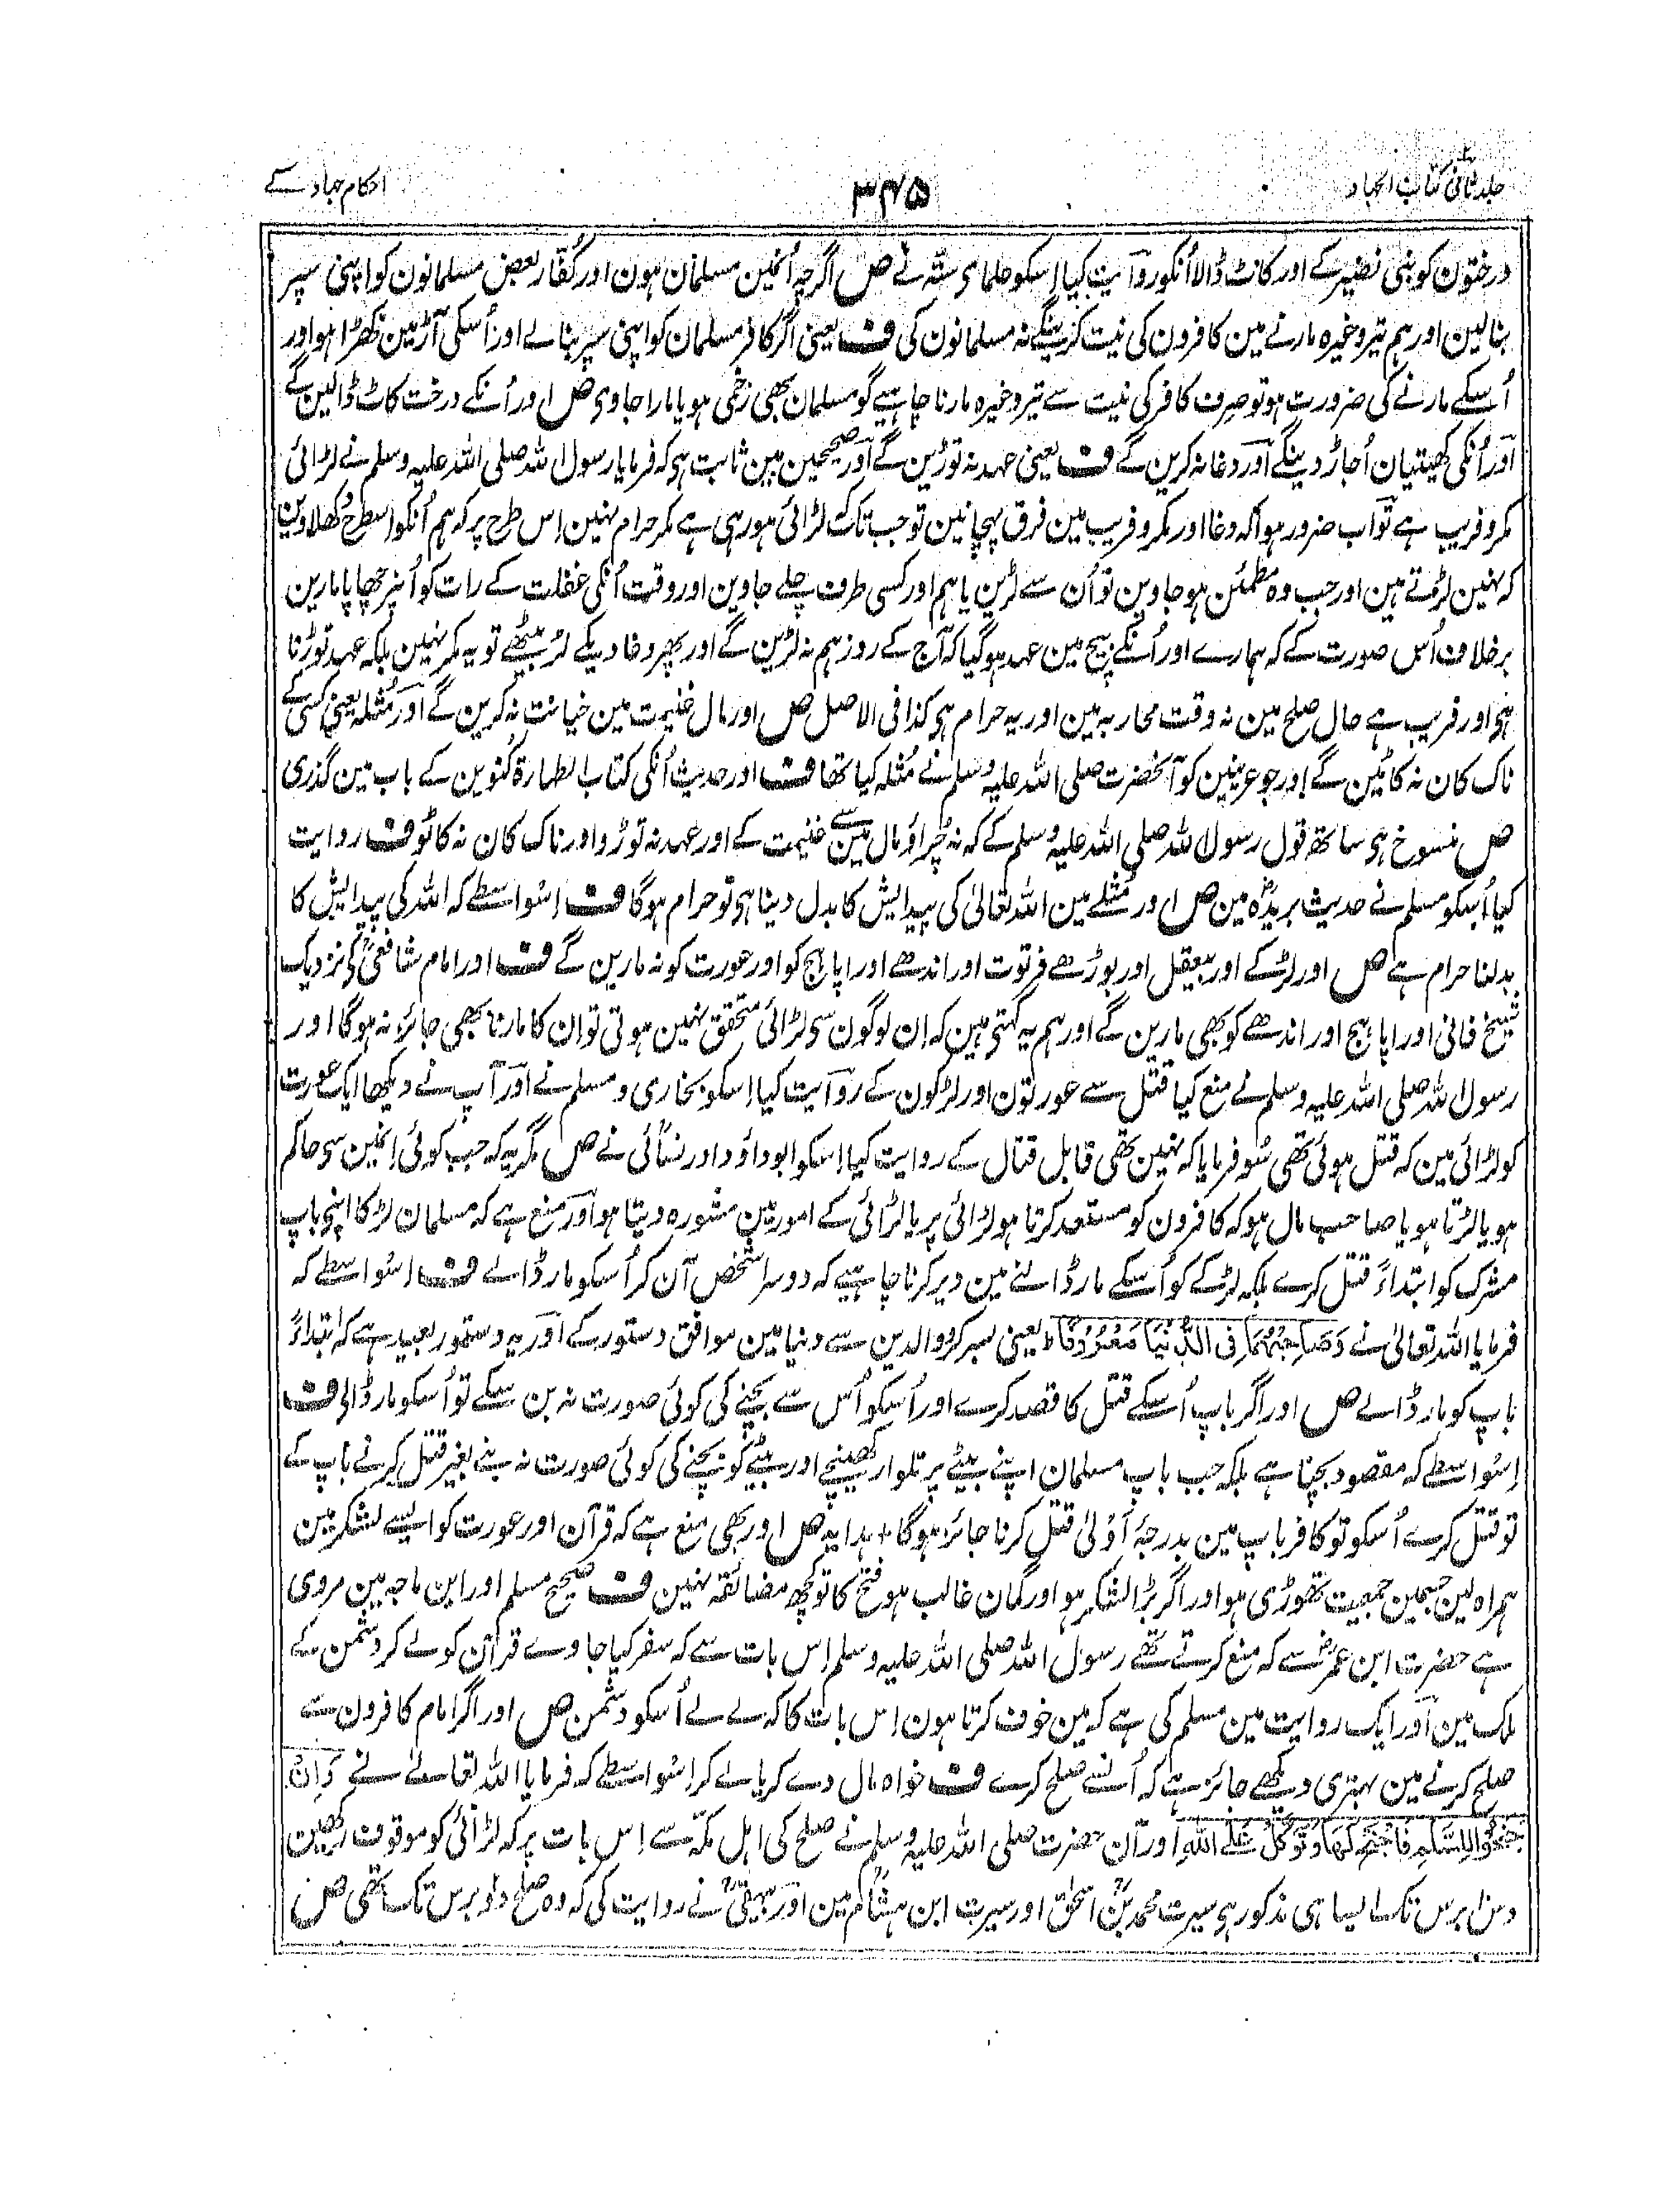 جلد ثانی کتاب الجہاد
۳۴۵
احکام جہاد کے
درختون کو بنی نضیر کے اور کاٹ ڈالا اُنکو روآیت کیا اِسکو علمای ستّہ نے ص اگرچہ اُنمین مسلمان ہون اور کُفّار بعض مسلمانون کو اپنی سپر
بنا لین اور ہم تیر وغیرہ مارنے مین کافرون کی نیت کرینگے نہ مسلمانون کی ف یعنی اگر کافر مسلمان کو اپنی سپر بنالے اور اُسکی آڑ مین کھڑا ہو اور
اُسکے مارنے کی ضرورت ہو تو صرف کافر کی نیت سے تیر وغیرہ مارنا چاہیے گو مسلمان بھی زخمی ہو یا مارا جاوی ص اور اُنکے درخت کاٹ ڈالین گے
اَور اُنکی کھیتیان اُجاڑ دینگے اَور دغا نہ کرین گے ف یعنی عہد نہ توڑین گے اَور صحیحین مین ثابت ہی کہ فرمایا رسول اللہ صلی اللہ علیہ وسلم نے لڑائی
مکر و فریب ہے تو اَب ضرور ہوا کہ دغا اور مکر و فریب مین فرق پہچانین تو جب تک لڑائی ہو رہی ہے مکر حرام نہین اِس طرح پر کہ ہم اُنکو اسطرح دکھلاوین
کہ نہین لڑتے ہین اور جب وہ مطمئن ہو جاوین تو اُن سے لڑین یا ہم اور کسی طرف چلے جاوین اور وقت اُنکی غفلت کے رات کو اُنپر چھاپا مارین
برخلاف اُس صورت کے کہ ہمارے اور اُنکے بیچ مین عہد ہو گیا کہ آج کے روز ہم نہ لڑین گے اور پھر دغا دیکے لڑ بیٹھے تو یہ مکر نہین بلکہ عہد توڑنا
ہی اور فریب ہے حال صلح مین نہ وقت محاربہ مین اور یہ حرام ہی کذا فی الاصل ص اور مال غنیمت مین خیانت نہ کرین گے اَور مُثلہ یعنی کسی کے
ناک کان نہ کاٹین گے اور جو عرنیین کو آنحضرت صلی اللہ علیہ وسلم نے مُثلہ کیا تھا ف اور حدیث اُنکی کتاب الطہارۃ کنوین کے باب مین گذری
ص منسوخ ہی ساتھ قول رسول اللہ صلی اللہ علیہ وسلم کے کہ نہ چُراؤ مال مین سے غنیمت کے اور عہد نہ توڑو اور ناک کان نہ کاٹو ف روایت
کیا اُسکو مسلم نے حدیث بریدہؓ مین ص اور مُثلے مین اللہ تعالیٰ کی پیدائش کا بدل دینا ہی تو حرام ہوگا ف اِسواسطے کہ اللہ کی پیدائش کا
بدلنا حرام ہے ص اور لڑکے اور بیعقل اور بوڑھے فرتوت اور اندھے اور اپاہج کو اور عورت کو نہ مارین گے ف اور امام شافعیؒ کی نزدیک
شیخ فانی اور اپاہج اور اندھے کو بھی مارین گے اور ہم یہ کہتی ہین کہ اِن لوگون سی لڑائی متحقق نہین ہوتی تو اِن کا مارنا بھی جائز نہ ہوگا اور
رسول اللہ صلی اللہ علیہ وسلم نے منع کیا قتل سے عورتون اور لڑکون کے روآیت کیا اِسکو بخاری و مسلم نے اَور آپ نے دیکھا ایک عورت
کو لڑائی مین کہ قتل ہوئی تھی سُو فرمایا کہ نہین تھی قابل قتال کے روایت کیا اِسکو ابوداؤد اور نسائی نے ص مگر یہ کہ جب کوئی اِنمین سی حاکم
ہو یا لڑتا ہو یا صاحب مال ہو کہ کافرون کو مستعد کرتا ہو لڑائی پر یا لڑائی کے امور مین مشورہ دیتا ہو اَور منع ہے کہ مسلمان لڑکا اپنی باپ
مشرک کو ابتداءً قتل کرے بلکہ لڑکے کو اُسکے مار ڈالنے مین دیر کرنا چاہیے کہ دوسرا شخص آن کر اُسکو مار ڈالے ف اِسواسطے کہ
فرمایا اللہ تعالیٰ نے وَصَاحِبْهُمَا فِی الدُّنْيَا مَعْرُوْفًا ط یعنی بسر کر و والدین سے دنیا مین موافق دستور کے اَور یہ دستور بعید ہے کہ ابتداءً
باپ کو مار ڈالے ص اور اگر باپ اُسکے قتل کا قصد کرے اور اُسکو اُس سے بچنے کی کوئی صورت نہ بن سکے تو اُسکو مار ڈالی ف
اِسواسطے کہ مقصود بچنا ہے بلکہ جب باپ مسلمان اپنے بیٹے پر تلوار کھینچے اور بیٹے کو بچنے کی کوئی صورت نہ بنے بغیر قتل کرنے باپ کے
تو قتل کرے اُسکو تو کافر باپ مین بدرجۂ اَوْلیٰ قتل کرنا جائز ہوگا + ہدایہ ص اور بھی منع ہے کہ قرآن اور عورت کو ایسے لشکر مین
ہمراہ لین جسمین جمعیت تھوڑی ہو اور اگر بڑا لشکر ہو اور گمان غالب ہو فتح کا تو کچھ مضائقہ نہین ف صحیح مسلم اور ابن ماجہ مین مروی
ہے حضرت ابن عمرؓ سے کہ منع کرتے تھے رسول اللہ صلی اللہ علیہ وسلم اِس بات سے کہ سفر کیا جاوے قرآن کو لے کر دشمن کے
ملک مین اَور ایک روایت مین مسلم کی ہے کہ مین خوف کرتا ہون اِس بات کا کہ لے لے اُسکو دشمن ص اور اگر امام کافرون سے
صلح کرنے مین بہتری دیکھے جائز ہے کہ اُنسے صلح کرے ف خواہ مال دے کر یا لے کر اِسواسطے کہ فرمایا اللہ تعالےٰ نے وَاِنْ
جَنَحُوْا لِلسَّلْمِ فَاجْنَحْ لَهَا وَتَوَكَّلْ عَلَے اللهِ اور آن حضرت صلی اللہ علیہ وسلم نے صلح کی اہل مکہ سے اِس بات پر کہ لڑائی کو موقوف رکھین
دس برس تک ایسا ہی مذکور ہی سیرت محمد بن اسحٰق اور سیرت ابن ہشام مین اَور بیہقی نے روایت کی کہ وہ صلح دو برس تک تھی ص